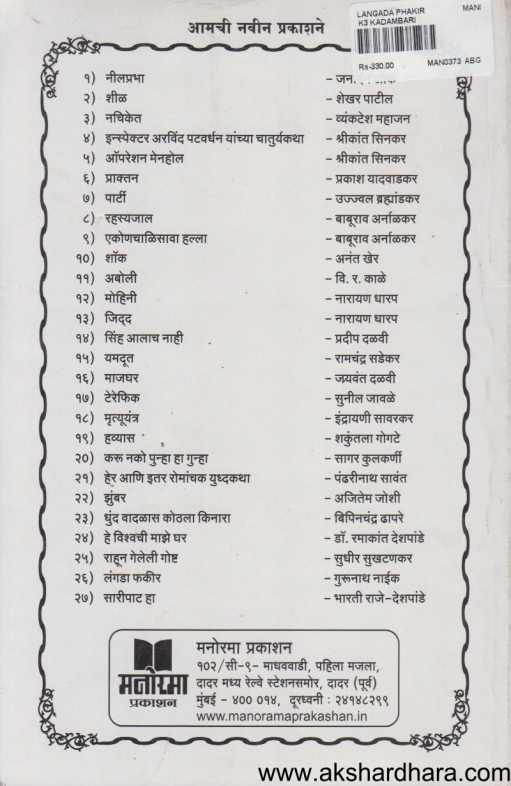 आमची नवीन प्रकाशने
LANGADA PHAKIR MANI
K3 KADAMBARI
Rs-330.00 MAN0373 ABG
१) नीलप्रभा
२) शीळ – शेखर पाटील
३) नचिकेत – व्यंकटेश महाजन
४) इन्स्पेक्टर अरविंद पटवर्धन यांच्या चातुर्यकथा – श्रीकांत सिनकर
५) ऑपरेशन मेनहोल – श्रीकांत सिनकर
६) प्राक्तन – प्रकाश यादवाडकर
७) पार्टी – उज्ज्वल ब्रह्मांडकर
८) रहस्यजाल – बाबूराव अर्नाळकर
९) एकोणचाळिसावा हल्ला – बाबूराव अर्नाळकर
१०) शॉक – अनंत खेर
११) अबोली – वि. र. काळे
१२) मोहिनी – नारायण धारप
१३) जिद्द – नारायण धारप
१४) सिंह आलाच नाही – प्रदीप दळवी
१५) यमदूत – रामचंद्र सडेकर
१६) माजघर – जयवंत दळवी
१७) टेरेफिक – सुनील जावळे
१८) मृत्यूयंत्र – इंद्रायणी सावरकर
१९) हव्यास – शकुंतला गोगटे
२०) करू नको पुन्हा हा गुन्हा – सागर कुलकर्णी
२१) हेर आणि इतर रोमांचक युध्दकथा – पंढरीनाथ सावंत
२२) झुंबर – अजितेम जोशी
२३) धुंद वादळास कोठला किनारा – बिपिनचंद्र ढापरे
२४) हे विश्वची माझे घर – डॉ. रमाकांत देशपांडे
२५) राहून गेलेली गोष्ट – सुधीर सुखटणकर
२६) लंगडा फकीर – गुरूनाथ नाईक
२७) सारीपाट हा – भारती राजे-देशपांडे
मनोरमा
प्रकाशन
मनोरमा प्रकाशन
१०२/सी-९- माधववाडी, पहिला मजला,
दादर मध्य रेल्वे स्टेशनसमोर, दादर (पूर्व)
मुंबई - ४०० ०१४, दूरध्वनी : २४१४८२९९
www.manoramaprakashan.in
www.akshardhara.com